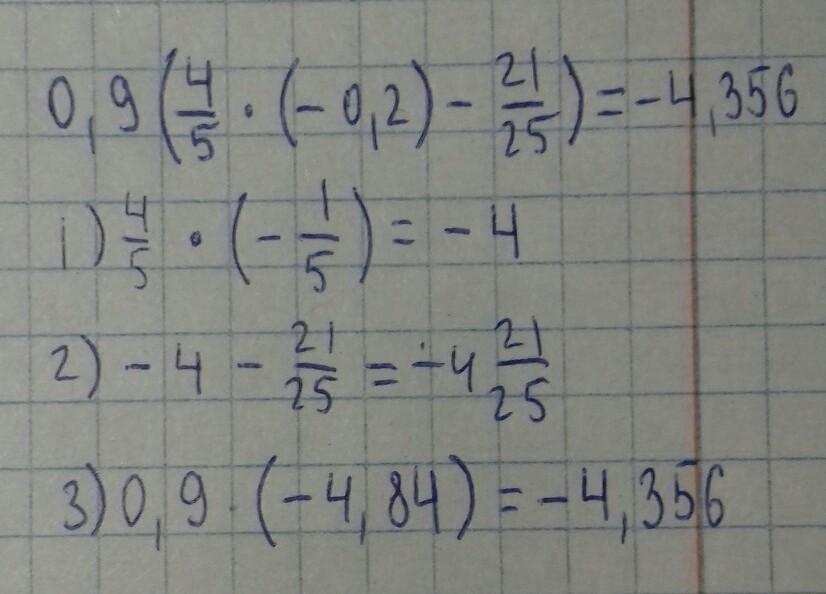 0,9(4/5 · (-0,2) - 21/25) = -4,356
1) 4/5 · (-1/5) = -4
2) -4 - 21/25 = -4 21/25
3) 0,9 · (-4,84) = -4,356